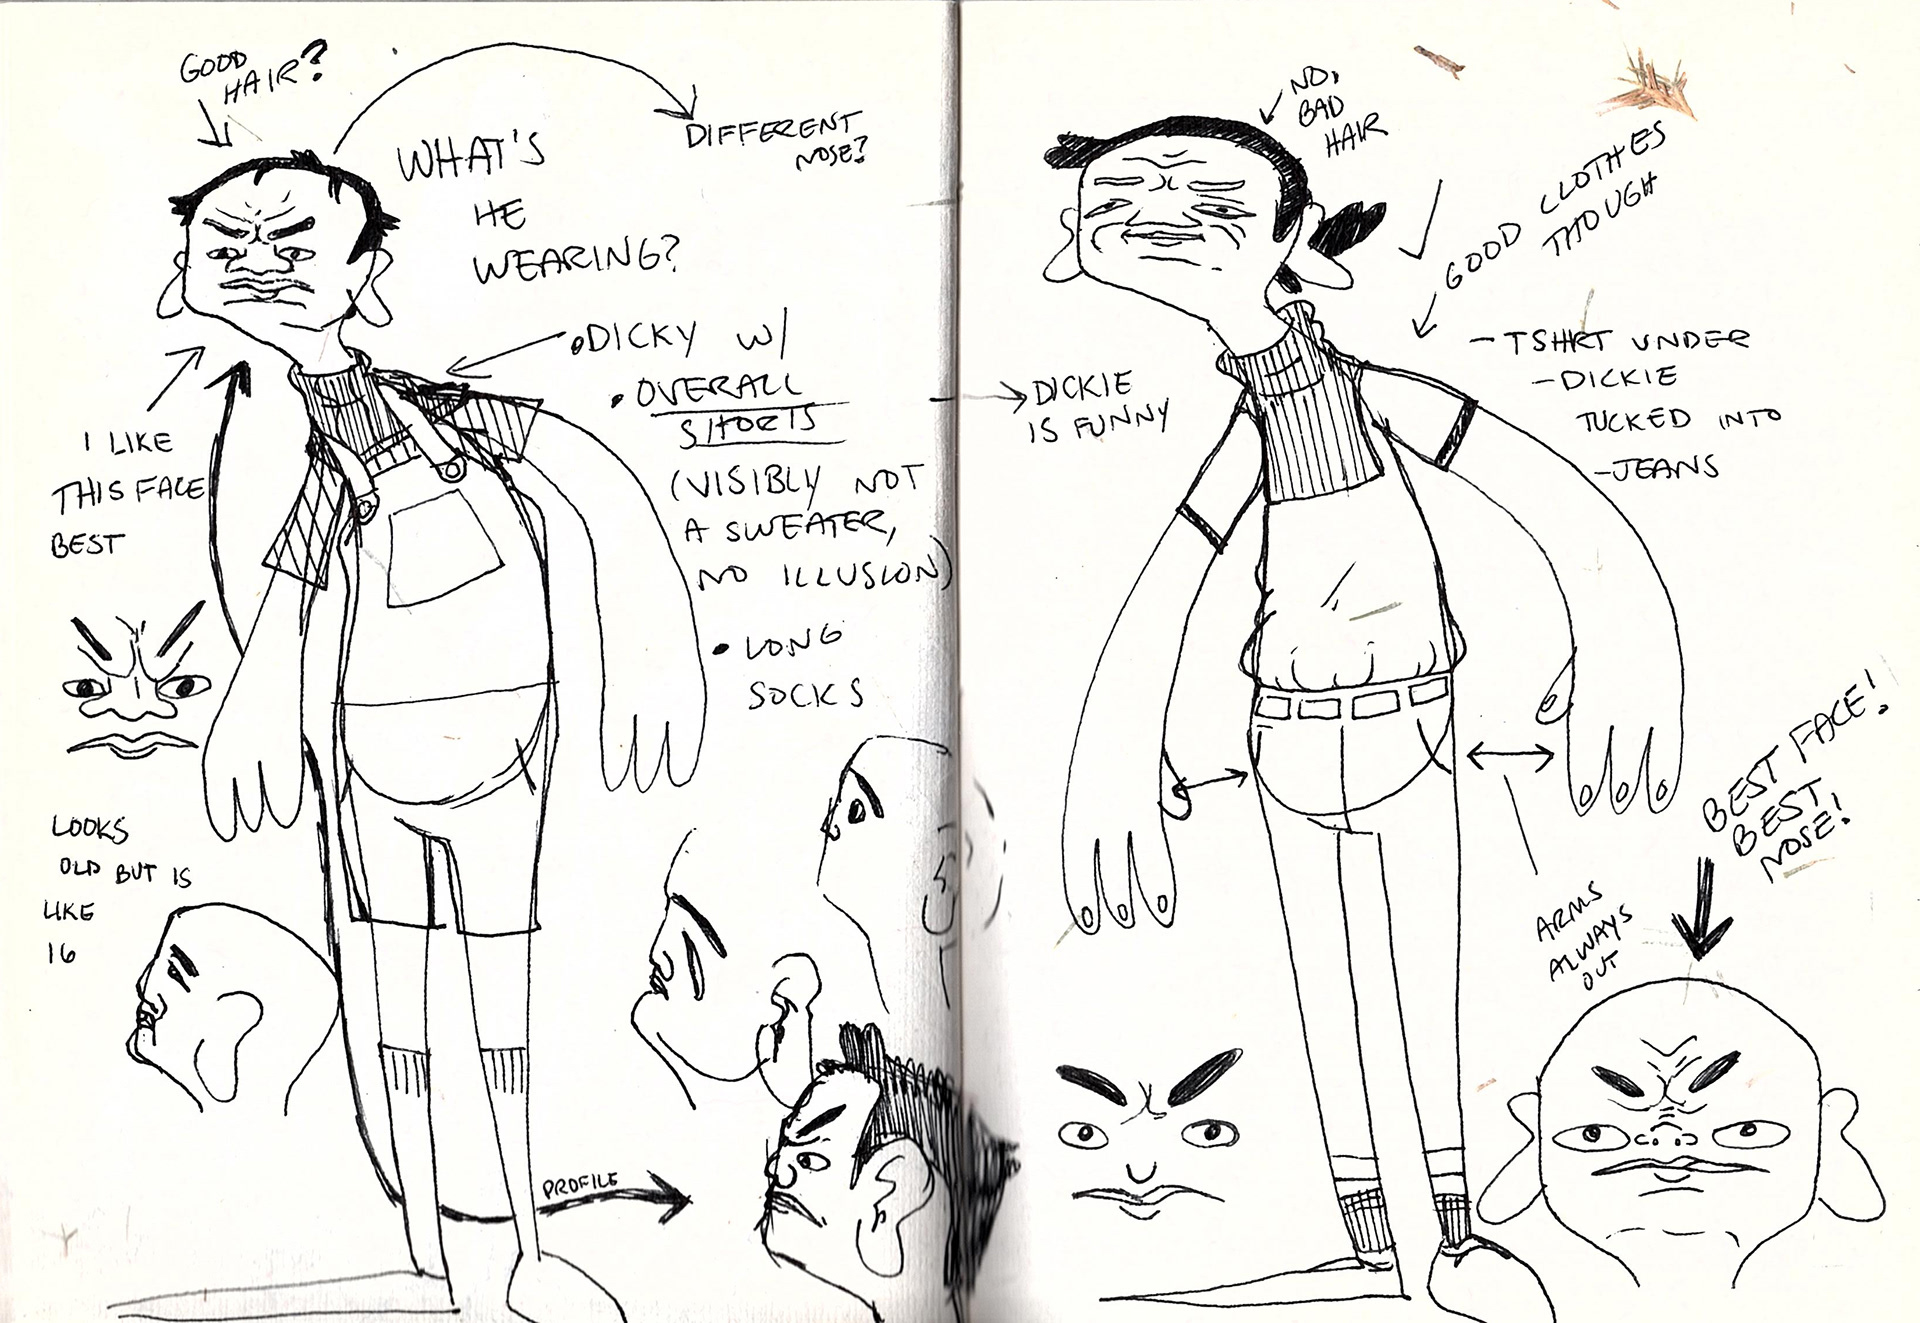 GOOD
HAIR?
WHAT'S
HE
WEARING?
DIFFERENT
NOSE?
• DICKY W/
• OVERALL
SHORTS
(VISIBLY NOT
A SWEATER,
NO ILLUSION)
• LONG
SOCKS
I LIKE
THIS FACE
BEST
LOOKS
OLD BUT IS
LIKE
16
PROFILE
NO,
BAD
HAIR
GOOD CLOTHES
THOUGH
DICKIE
IS FUNNY
- TSHIRT UNDER
- DICKIE
TUCKED INTO
- JEANS
BEST FACE!
BEST
NOSE!
ARMS
ALWAYS
OUT